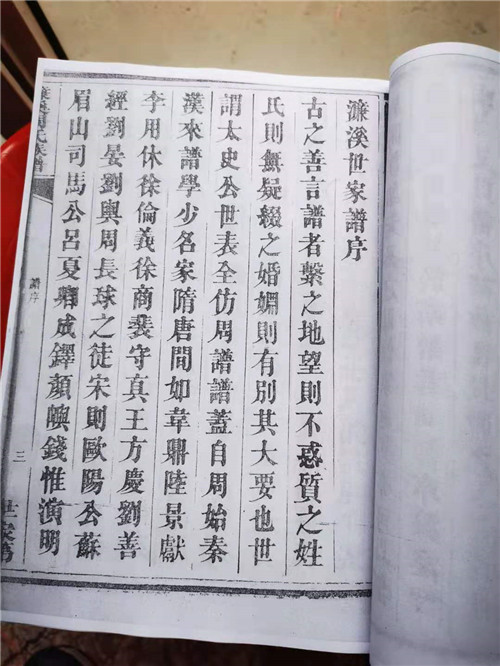 濂溪世家譜序
古之善言譜者繫之地望則不惑質之姓
氏則無疑綴之婚姻則有別其大要也世
謂太史公世表全仿周譜譜蓋自周始秦
漢來譜學少名家隋唐間如韋鼎陸景獻
李用休徐倫義徐商裴守真王方慶劉善
經劉晏劉輿周長球之徒宋則歐陽公蘇
眉山司馬公呂夏卿成鐸顏嶼錢惟演明
譜序
三